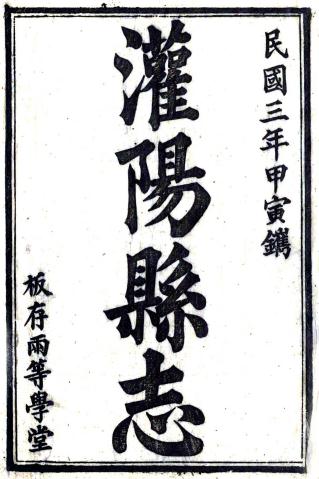 民國三年甲寅鐫
灌陽縣志
板存兩等學堂